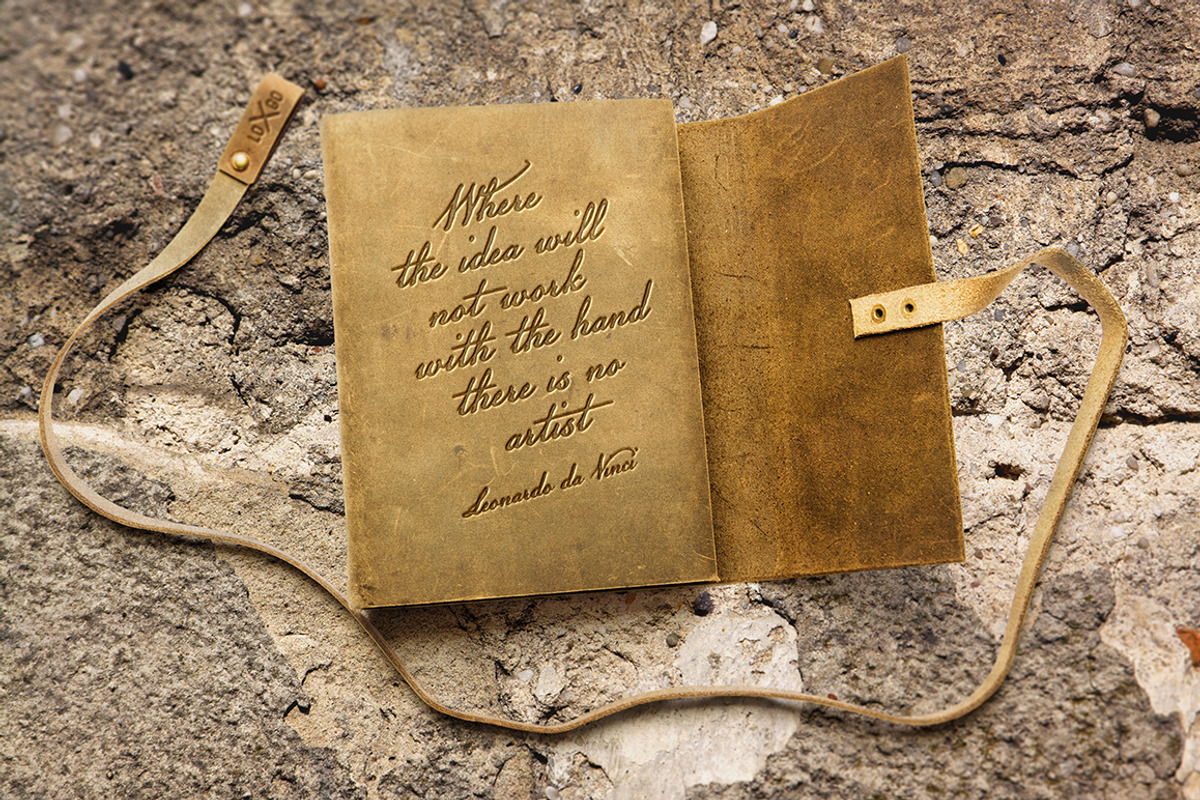 LOXGO
Where
the idea will
not work
with the hand
there is no
artist
Leonardo da Vinci